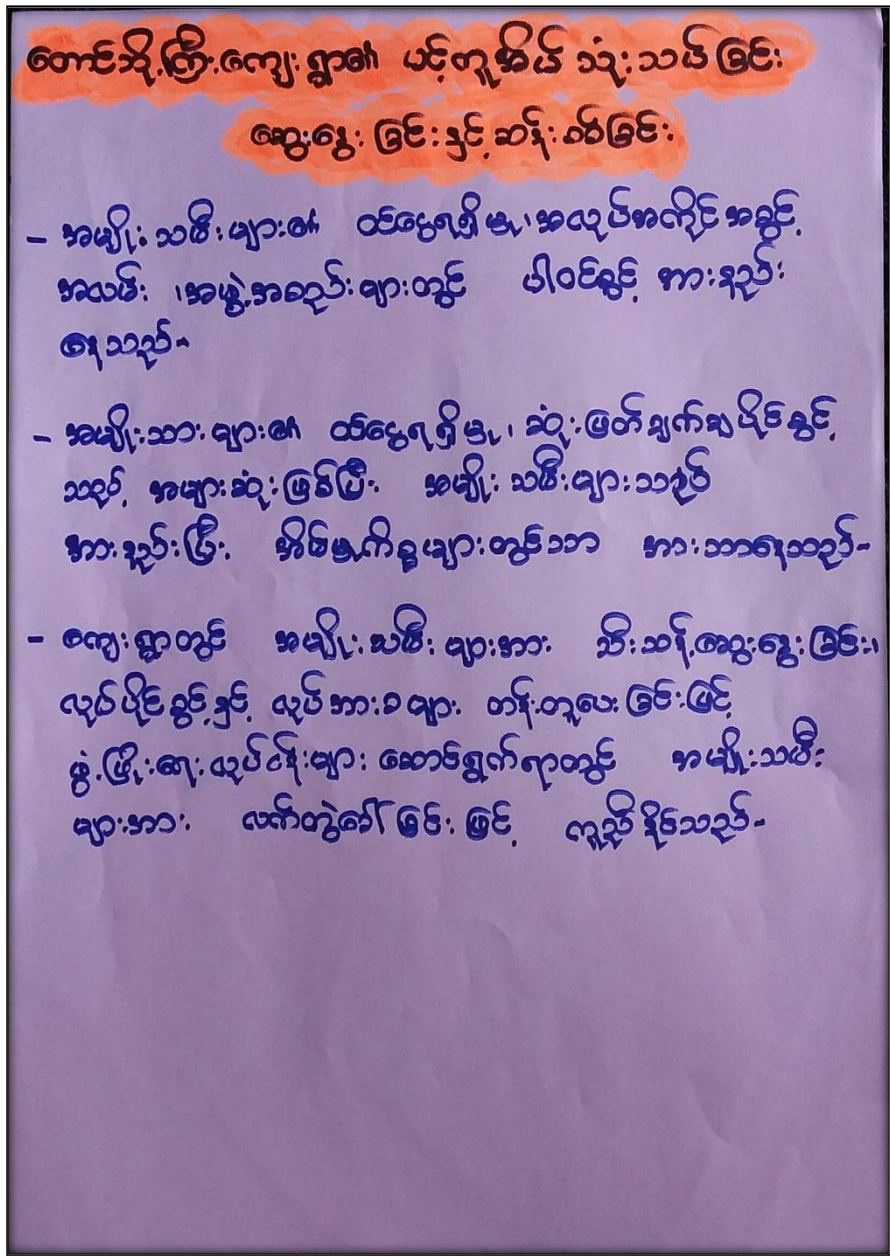 တောင်ဘို့ကြီးကျေးရွာ၏ ပင့်ကူအိမ် သုံးသပ်ခြင်း
ဆွေးနွေးခြင်းနှင့် ဆန်းစစ်ခြင်း
- အမျိုးသမီးများ၏ ထင်ငွေရရှိမှု၊ အလုပ်အကိုင်အခွင့်
အလမ်း ၊အဖွဲ့အစည်းများတွင် ပါဝင်ခွင့် အားနည်း
နေသည်။
- အမျိုးသားများ၏ ထင်ငွေရရှိမှု၊ ဆုံးဖြတ်ချက်ချပိုင်ခွင့်
သည် အများဆုံးဖြစ်ပြီး အမျိုးသမီးများသည်
အားနည်းပြီး အိမ်မှုကိစ္စများတွင်သာ အားသာနေသည်။
- ကျေးရွာတွင် အမျိုးသမီးများအား သီးသန့်ဆွေးနွေးခြင်း၊
လုပ်ပိုင်ခွင့်နှင့် လုပ်အားခများ တန်းတူပေးခြင်းဖြင့်
ဖွံ့ဖြိုးရေးလုပ်ငန်းများ ဆောင်ရွက်ရာတွင် အမျိုးသမီး
များအား လက်တွဲခေါ်ခြင်းဖြင့် ကူညီနိုင်သည်။